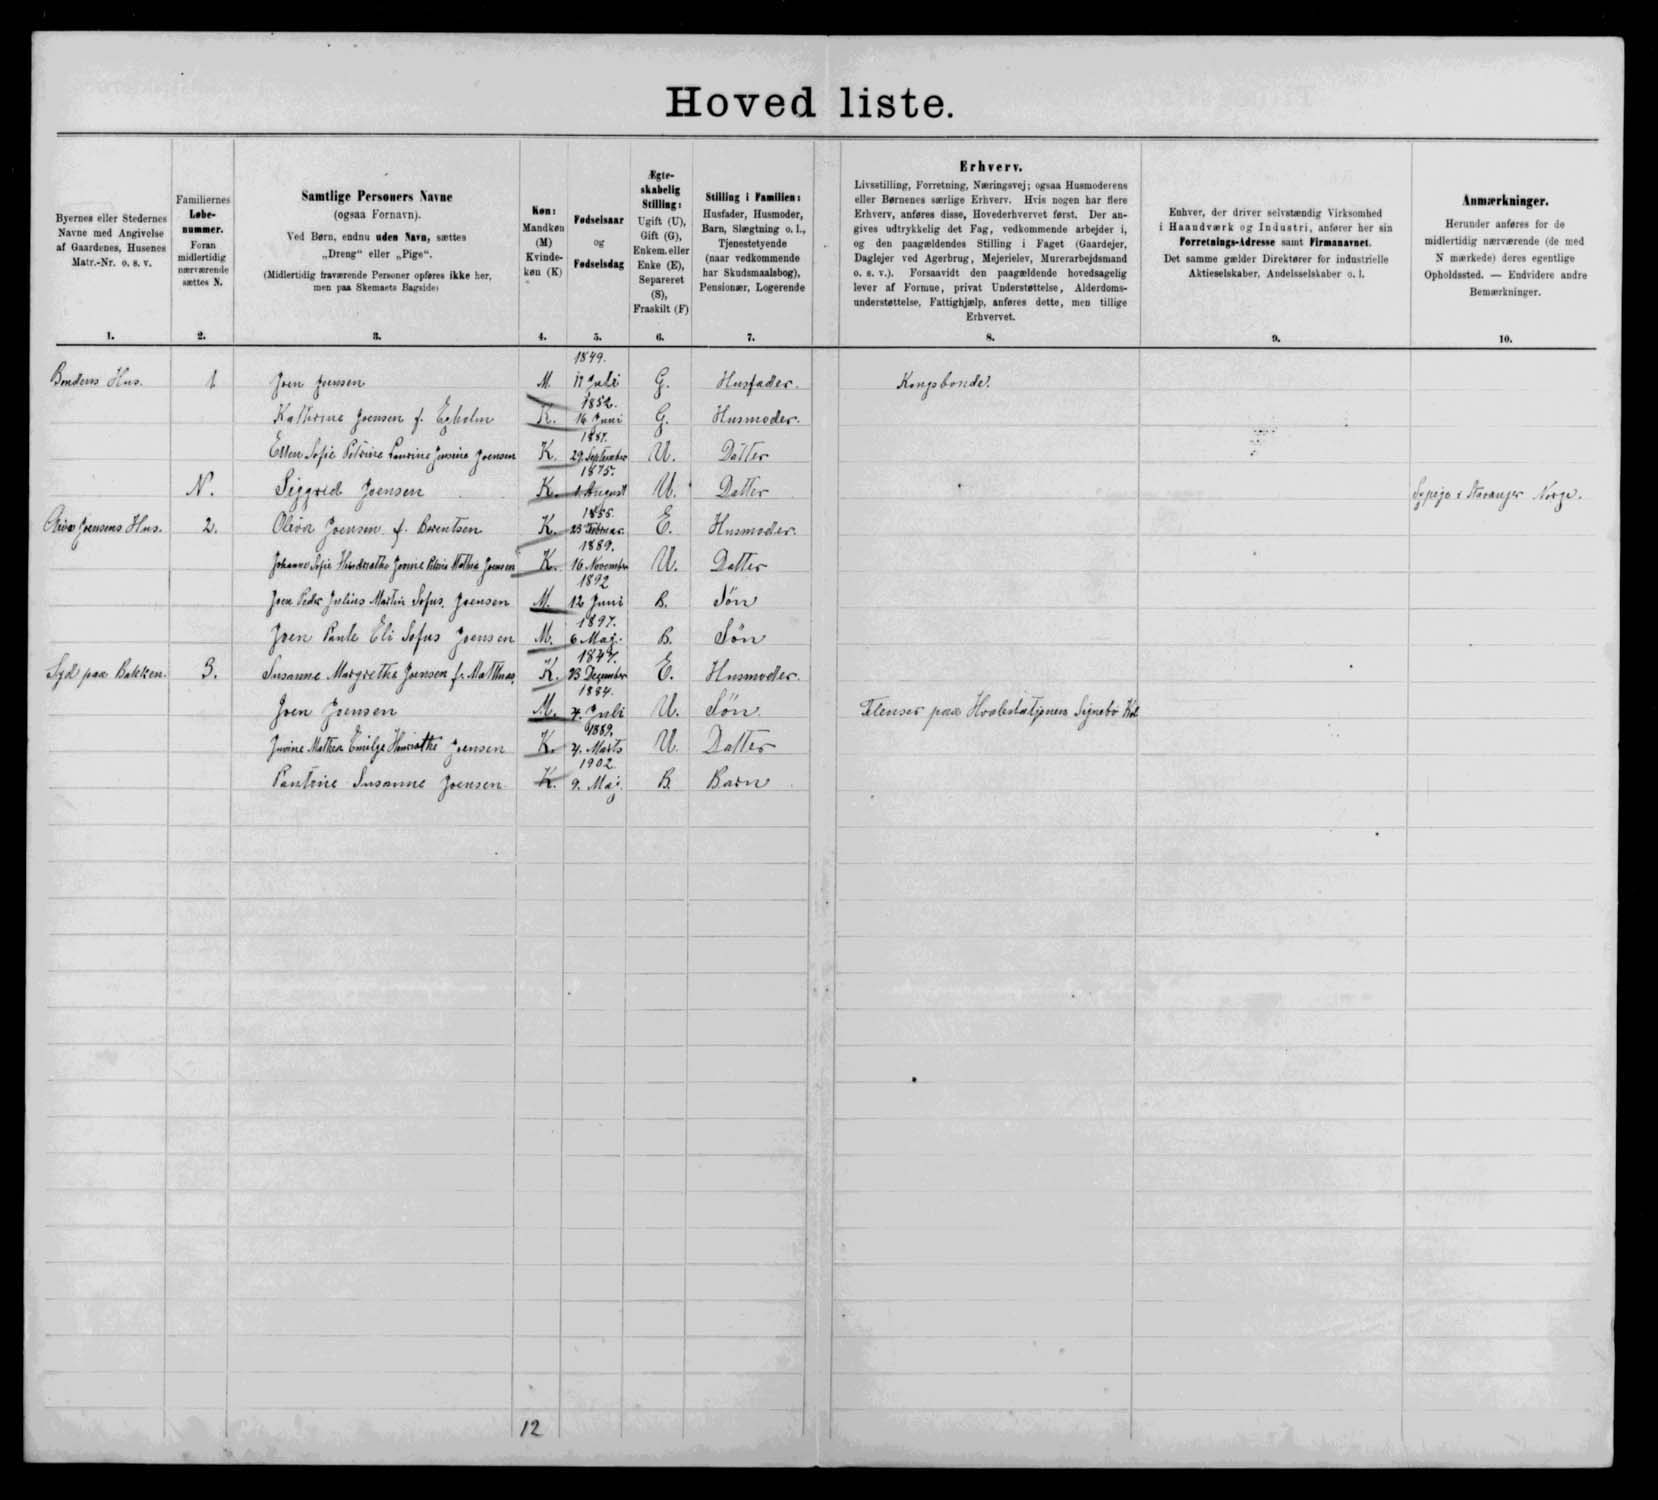 Hoved liste.
Byernes eller Stedernes
Navne med Angivelse
af Gaardenes, Husenes
Matr.-Nr. o. s. v.
1.
Familiernes
Løbe-
nummer.
Foran
midlertidig
nærværende
sættes N.
2.
Samtlige Personers Navne
(ogsaa Fornavn).
Ved Børn, endnu uden Navn, sættes
„Dreng“ eller „Pige“.
(Midlertidig fraværende Personer opføres ikke her,
men paa Skemaets Bagside)
3.
Køn:
Mandkøn
(M)
Kvinde-
køn (K)
4.
Fødselsaar
og
Fødselsdag
5.
Ægte-
skabelig
Stilling:
Ugift (U),
Gift (G),
Enkem. eller
Enke (E),
Separeret
(S),
Fraskilt (F)
6.
Stilling i Familien:
Husfader, Husmoder,
Barn, Slægtning o. l.,
Tjenestetyende
(naar vedkommende
har Skudsmaalsbog),
Pensionær, Logerende
7.
Erhverv.
Livsstilling, Forretning, Næringsvej; ogsaa Husmoderens
eller Børnenes særlige Erhverv. Hvis nogen har flere
Erhverv, anføres disse, Hovederhvervet først. Der an-
gives udtrykkelig det Fag, vedkommende arbejder i,
og den paagældendes Stilling i Faget (Gaardejer,
Daglejer ved Agerbrug, Mejerielev, Murerarbejdsmand
o. s. v.). Forsaavidt den paagældende hovedsagelig
lever af Formue, privat Understøttelse, Alderdoms-
understøttelse, Fattighjælp, anføres dette, men tillige
Erhvervet.
8.
Enhver, der driver selvstændig Virksomhed
i Haandværk og Industri, anfører her sin
Forretnings-Adresse samt Firmanavnet.
Det samme gælder Direktører for industrielle
Aktieselskaber, Andelsselskaber o. l.
9.
Anmærkninger.
Herunder anføres for de
midlertidig nærværende (de med
N mærkede) deres egentlige
Opholdssted. — Endvidere andre
Bemærkninger.
10.
Bondens Hus. 1 Joen Joensen M. 1849. 17 Juli G. Husfader. Kongsbonde.
Kathrine Joensen f. Egholm K. 1852. 16 Juni G. Husmoder.
Ellen Sofie Petrine Joensen K. 29. September U. Datter
N. Siggrid Joensen K. 1875. 1. August U. Datter Sypige i Stavanger Norge.
Joensens Hus. 2. Olivia Joensen f. Berentsen K. 1855. 23 Februar. E. Husmoder.
Johanne Sofie Mathea Joensen K. 1889. 16 November U. Datter
Joen Peder Julius Martin Sofus Joensen M. 1892 12 Juni B. Søn
Joen Eli Sofus Joensen M. 1897. 6 Maj. B. Søn
Syd paa Bakken. 3. Susanne Margrethe Joensen f. K. 23 December E. Husmoder.
Joen Joensen M. 1884. 4. Juli U. Søn. Flenser paa
Mathea Joensen K. 1889. 4. Marts U. Datter
Susanne Joensen K. 1902 9. Maj. B. Barn
12